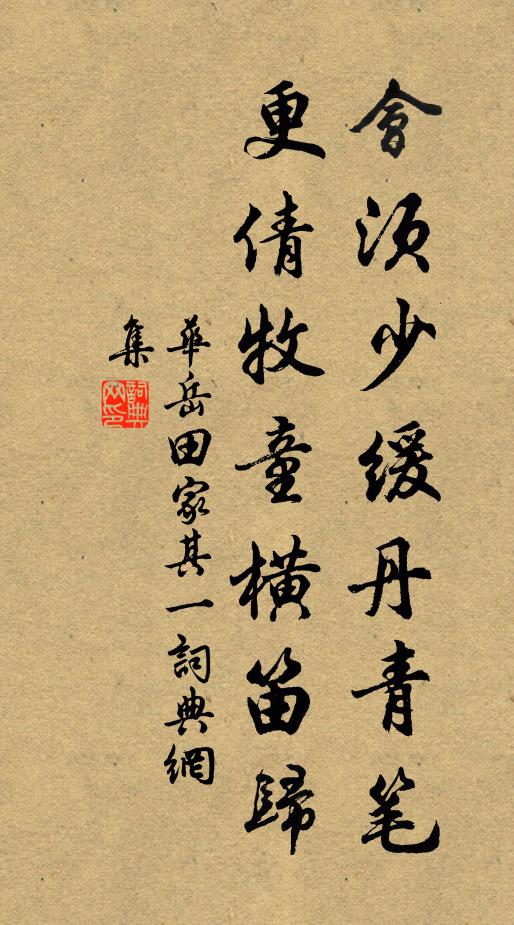 會須少緩丹青笔
更倩牧童橫笛歸
華岳田家其一詞典網
集
詞典网印